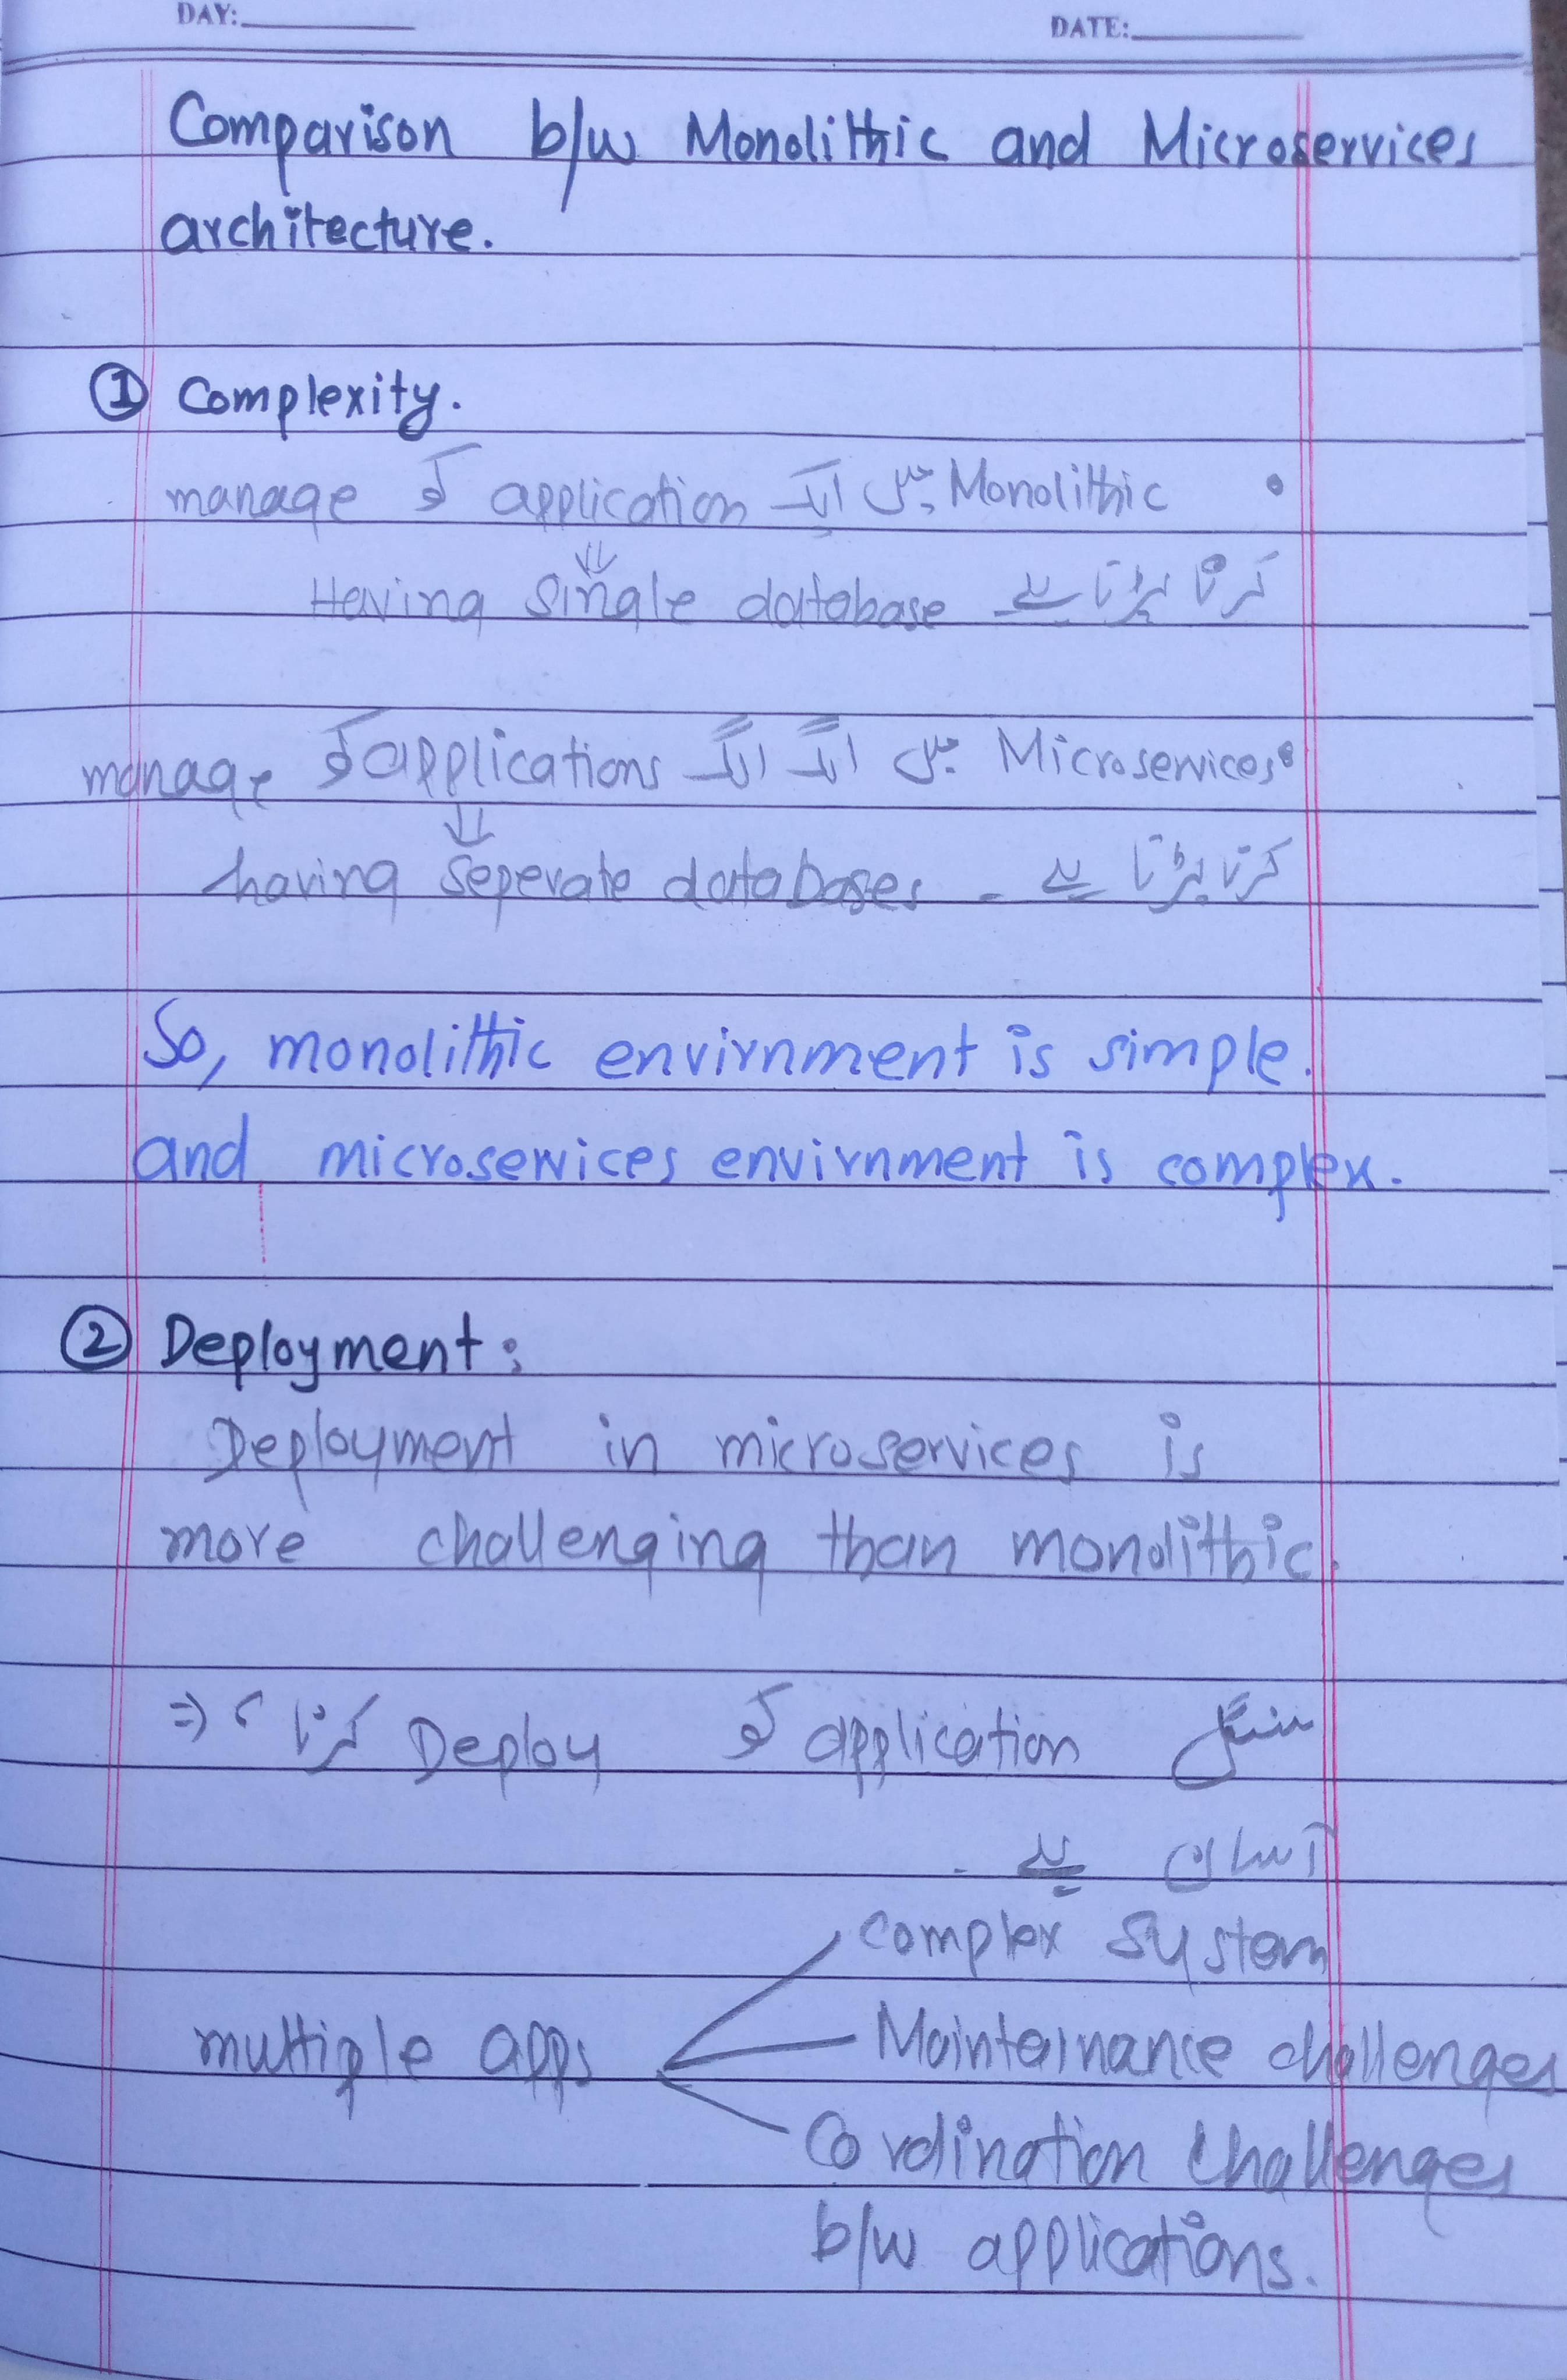 DAY:
DATE:
Comparison b/w Monolithic and Microservices
architecture.
① Complexity.
• Monolithic میں ایک application کو manage
کرنا پڑتا ہے Having single database
• Microservices میں الگ الگ applications کو manage
کرنا پڑتا ہے ۔ having seperate databases
So, monolithic envirnment is simple.
and microservices envirnment is complex.
② Deployment:
Deployment in microservices is
more challenging than monolithic.
سنگل application کو Deploy کرنا
آسان ہے ۔
complex system
multiple apps
Mainteinance challenges
Cordination Challenges
b/w applications.